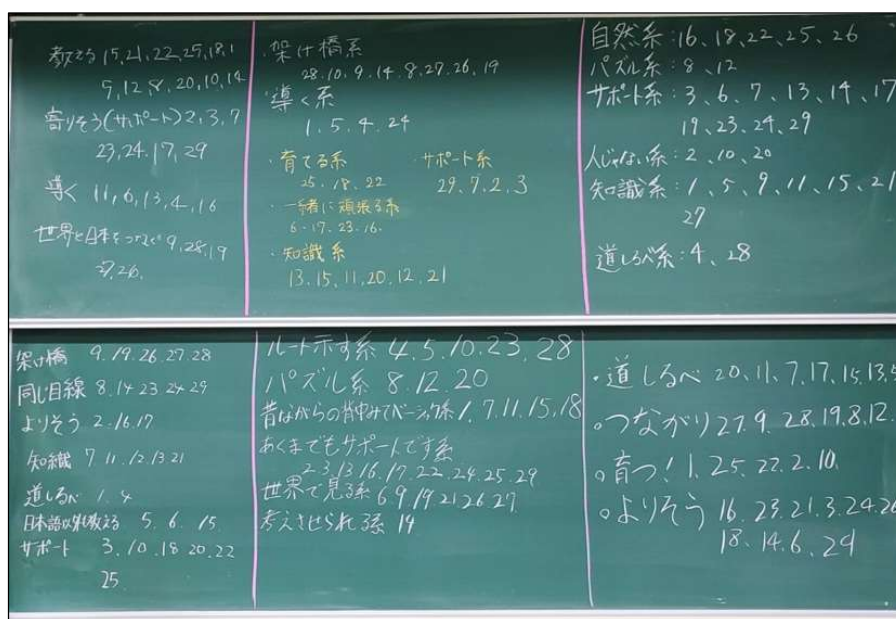 教える 15,21,22,25,18,1
5,12,8,20,10,14
寄りそう(サポート)2,3,7
23,24,17,29
導く 11,6,13,4,16
世界と日本をつなぐ 9,28,19
27,26.
・架け橋系
28.10.9.14.8.27.26.19
・導く系
1.5.4.24
・育てる系
25.18.22
・サポート系
29.7.2.3
・一緒に頑張る系
6.17.23.16.
・知識系
13.15.11.20.12.21
自然系:16、18、22、25、26
パズル系:8、12
サポート系:3、6、7、13、14、17
19、23、24、29
人じゃない系:2、10、20
知識系:1、5、9、11、15、21
27
道しるべ系:4、28
架け橋 9.19.26.27.28
同じ目線 8.14 23 24 29
よりそう 2.16.17
知識 7 11.12.13.21
道しるべ 1.4
日本語以外も教える 5.6.15.
サポート 3.10.18 20.22
25.
ルート示す系 4.5.10.23.28
パズル系 8.12.20
昔ながらの背中みてベーシック系 1.7.11.15.18
あくまでもサポートです系
2 3.13.16.17.22.24.25.29
世界で見る系 6 9.19 21.26 27
考えさせられる系 14
・道しるべ 20、11、7.17、15.13.5
○つながり 27.9.28、19.8、12.
○育つ! 1.25.22.2.10.
○よりそう 16.23.21.3.24.26
18.14.6.29